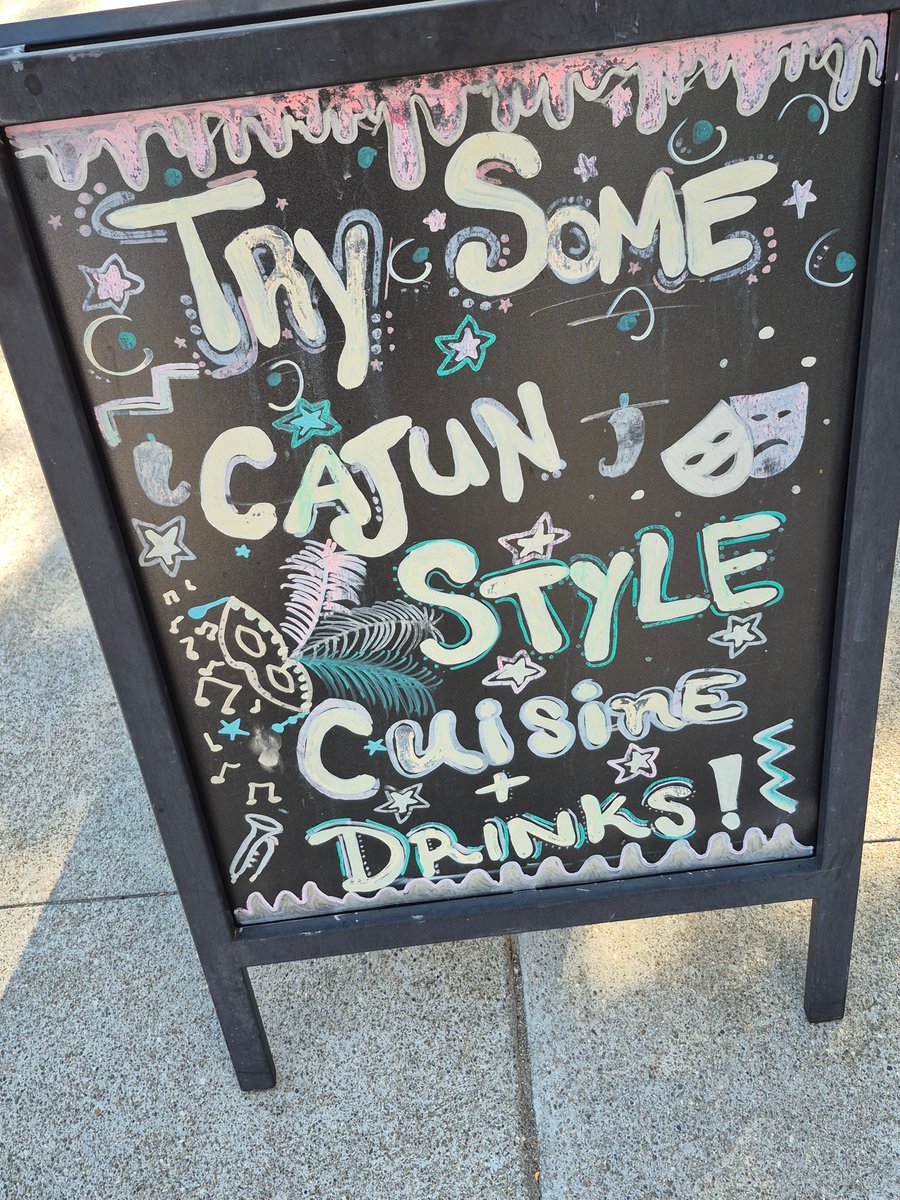 Try Some
Cajun
Style
Cuisine
+
Drinks!